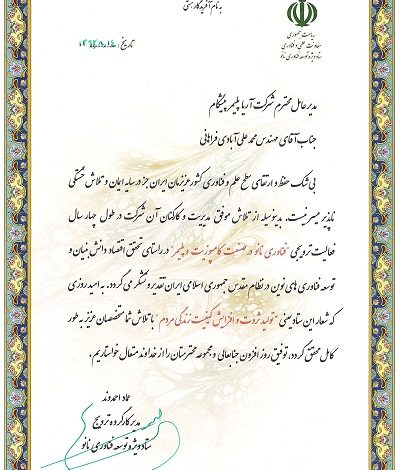 به نام آفریدگار هستی
ریاست جمهوری
معاونت علمی و فناوری
ستاد ویژه توسعه فناوری نانو
تاریخ:
مدیرعامل محترم شرکت آریا پلیمر پیشگام
جناب آقای مهندس محمد علی آبادی فراهانی
بی شک حفظ و ارتقای سطح علم و فناوری کشور عزیزمان ایران جز در سایه ایمان و تلاش خستگی
ناپذیر میسر نیست. بدینوسیله از تلاش موفق مدیریت و کارکنان آن شرکت در طول چهار سال
فعالیت ترویجی "فناوری نانو در صنعت کامپوزیت و پلیمر" در راستای تحقق اقتصاد دانش بنیان و
توسعه فناوری های نوین در نظام مقدس جمهوری اسلامی ایران تقدیر و تشکر می گردد. به امید روزی
که شعار این ستاد یعنی "تولید ثروت و افزایش کیفیت زندگی مردم" با تلاش شما متخصصان عزیز به طور
کامل محقق گردد، توفیق روز افزون جنابعالی و مجموعه محترمتان را از خداوند متعال خواستاریم.
عماد احمدوند
مدیر کارگروه ترویج
ستاد ویژه توسعه فناوری نانو